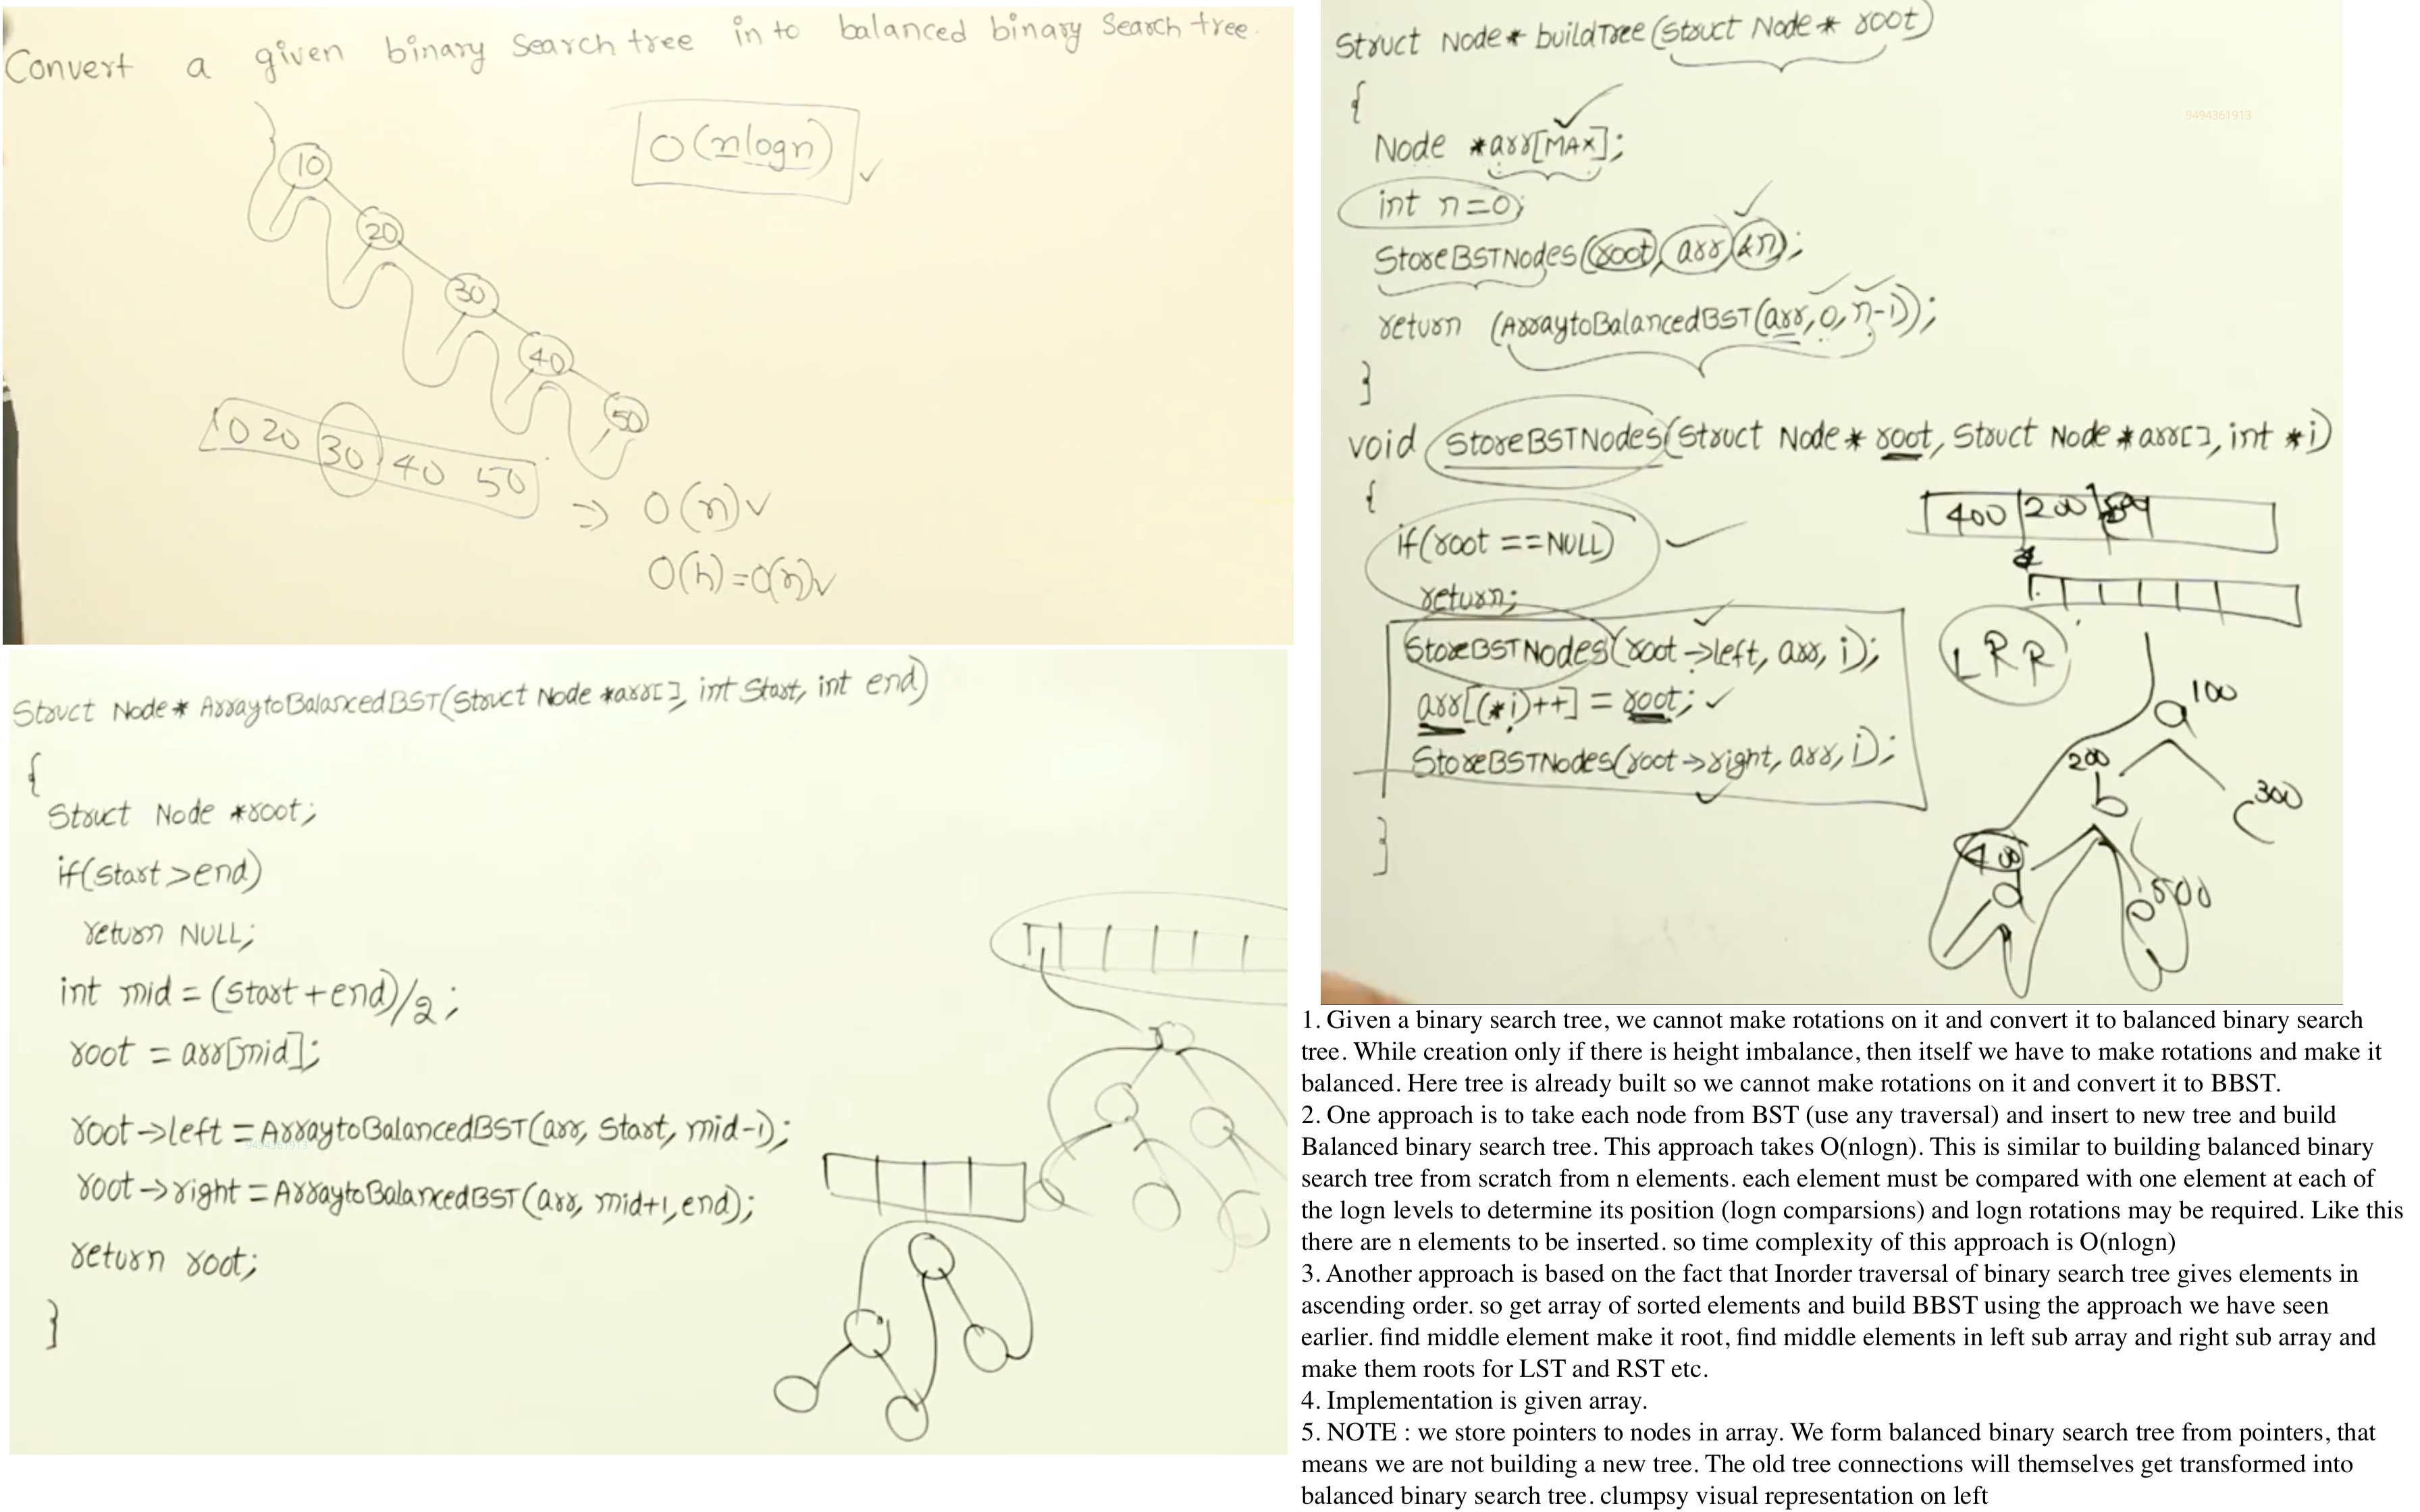 Convert a given binary Search tree in to balanced binary Search tree.
O(nlogn)
10
20
30
40
50
10 20 30 40 50
=> O(n)
O(h)=O(n)
Struct Node* ArraytoBalancedBST(Struct Node *arr[], int Start, int end)
{
Struct Node *root;
if(Start>end)
return NULL;
int mid = (Start+end)/2;
root = arr[mid];
root->left = ArraytoBalancedBST(arr, Start, mid-1);
root->right = ArraytoBalancedBST(arr, mid+1, end);
return root;
}
9494361913
Struct Node* buildTree(Struct Node* root)
{
9494361913
Node *arr[MAX];
int n=0;
StoreBSTNodes(root, arr, &n);
return (ArraytoBalancedBST(arr, 0, n-1));
}
void StoreBSTNodes(Struct Node* root, Struct Node *arr[], int *i)
{
if(root ==NULL)
return;
StoreBSTNodes(root->left, arr, i);
arr[(*i)++] = root;
StoreBSTNodes(root->right, arr, i);
}
400 200
LRR
a 100
200
b
c 300
400
d
e 500
1. Given a binary search tree, we cannot make rotations on it and convert it to balanced binary search
tree. While creation only if there is height imbalance, then itself we have to make rotations and make it
balanced. Here tree is already built so we cannot make rotations on it and convert it to BBST.
2. One approach is to take each node from BST (use any traversal) and insert to new tree and build
Balanced binary search tree. This approach takes O(nlogn). This is similar to building balanced binary
search tree from scratch from n elements. each element must be compared with one element at each of
the logn levels to determine its position (logn comparsions) and logn rotations may be required. Like this
there are n elements to be inserted. so time complexity of this approach is O(nlogn)
3. Another approach is based on the fact that Inorder traversal of binary search tree gives elements in
ascending order. so get array of sorted elements and build BBST using the approach we have seen
earlier. find middle element make it root, find middle elements in left sub array and right sub array and
make them roots for LST and RST etc.
4. Implementation is given array.
5. NOTE : we store pointers to nodes in array. We form balanced binary search tree from pointers, that
means we are not building a new tree. The old tree connections will themselves get transformed into
balanced binary search tree. clumpsy visual representation on left